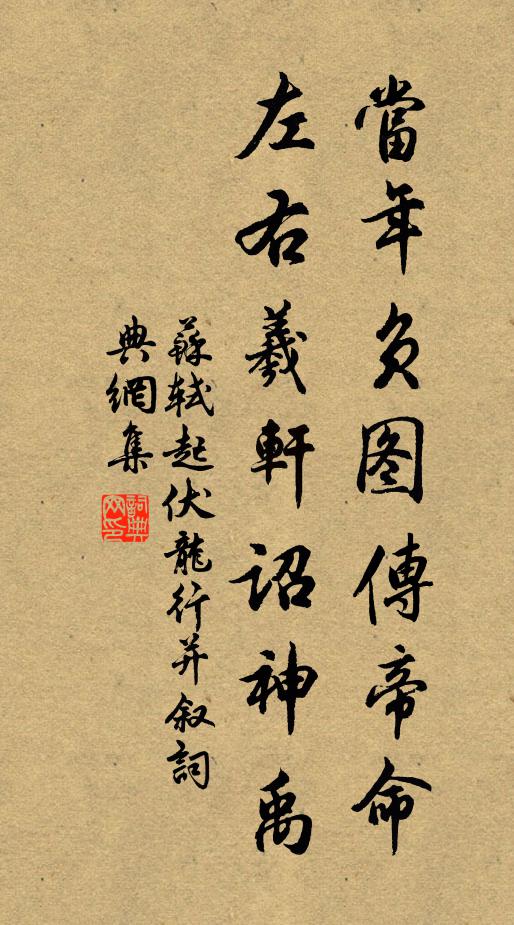 當年負图傳帝命
左右羲軒詔神禹
蘇軾起伏龍行并叙詞
典網集
詞典網印